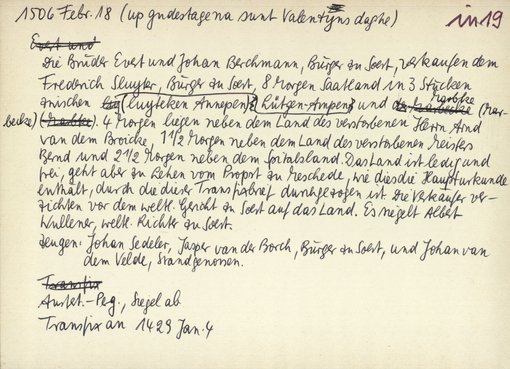 1506 Febr. 18 (up gudestagena sunt Valentyns daghe)
in 19
Evert und
Die Brüder Evert und Johan Berchmann, Bürger zu Soest, verkaufen dem
Frederich Sluyter, Bürger zu Soest, 8 Morgen Saatland in 3 Stücken
zwischen (luyteken Annepen) (Lütgen-Ampen) und Marbike (Mar-
becke) (Marbke). 4 Morgen liegen neben dem Land des verstorbenen Herrn Arnd
van dem Broicke, 1 1/2 Morgen neben dem Land des verstorbenen Meisters
Bernd und 2 1/2 Morgen neben dem Spitalsland. Das Land ist ledig und
frei, geht aber zu Lehen vom Propst zu Meschede, wie dies die Haupturkunde
enthält, durch die dieser Transfixbrief durchgezogen ist. Die Verkäufer ver-
zichten vor dem weltl. Gericht zu Soest auf das Land. Es siegelt Albert
Wullener, weltl. Richter zu Soest.
Zeugen: Johan Sedeler, Jasper van der Borch, Bürger zu Soest, und Johan van
dem Velde, Standgenossen.
Transfix
Ausf.-Perg., Siegel ab
Transfix an 1429 Jan. 4